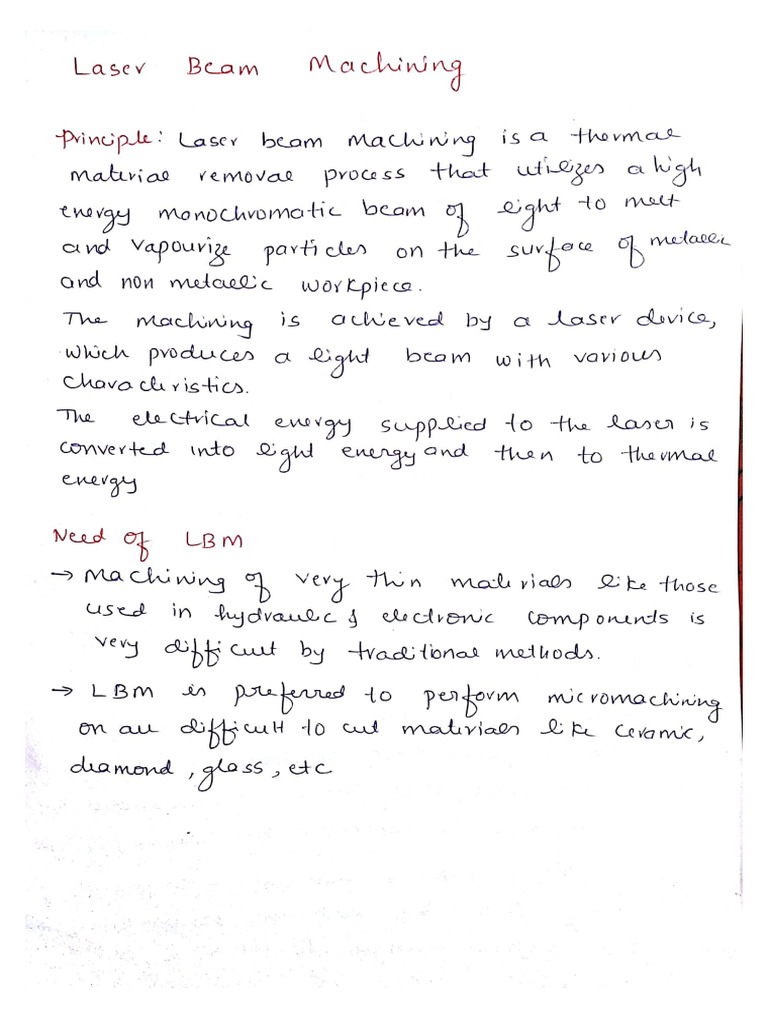 Laser Beam Machining
Principle: Laser beam machining is a thermal
material removal process that utilizes a high
energy monochromatic beam of light to melt
and vapourize particles on the surface of metallic
and non metallic workpiece.
The machining is achieved by a laser device,
which produces a light beam with various
characteristics.
The electrical energy supplied to the laser is
converted into light energy and then to thermal
energy
Need of LBM
→ Machining of very thin materials like those
used in hydraulic & electronic components is
very difficult by traditional methods.
→ LBM is preferred to perform micromachining
on all difficult to cut materials like ceramic,
diamond, glass, etc